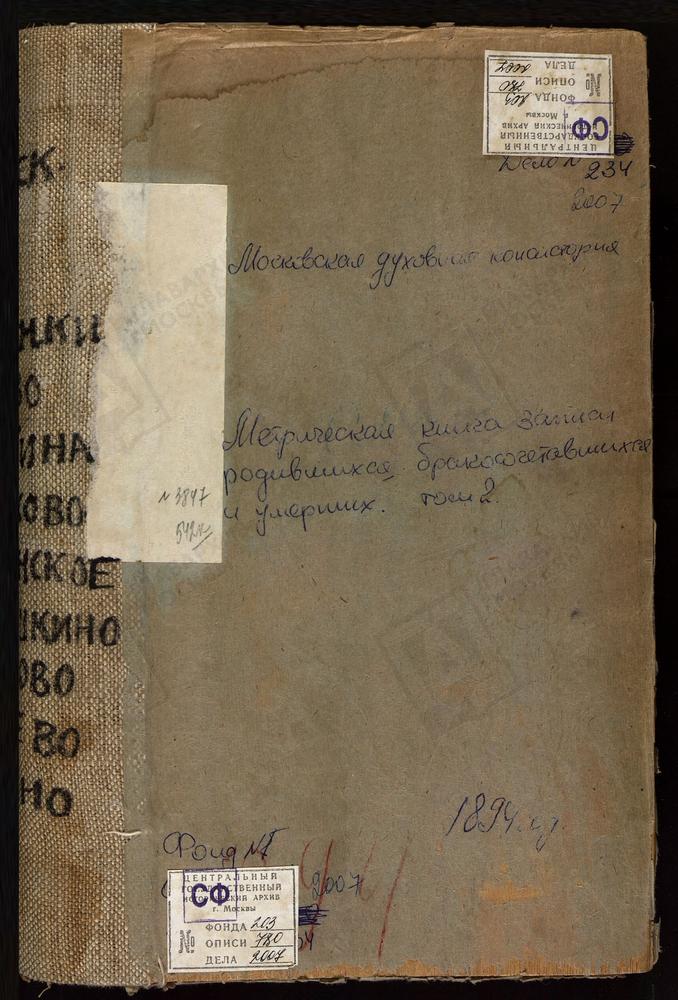 ЦЕНТРАЛЬНЫЙ
ГОСУДАРСТВЕННЫЙ
ИСТОРИЧЕСКИЙ АРХИВ
г. Москвы
СФ
№
ФОНДА 203
ОПИСИ 780
ДЕЛА 2007
Дело N 234
2007
Московская духовная консистория
Метрическая книга записи
родившихся бракосочетавшихся
и умерших. том 2.
N 3847
542
НСКОЕ
КИНО
ОВО
ВО
НО
1894
Фонд
2007
ЦЕНТРАЛЬНЫЙ
ГОСУДАРСТВЕННЫЙ
ИСТОРИЧЕСКИЙ АРХИВ
г. Москвы
СФ
№
ФОНДА 203
ОПИСИ 780
ДЕЛА 2007